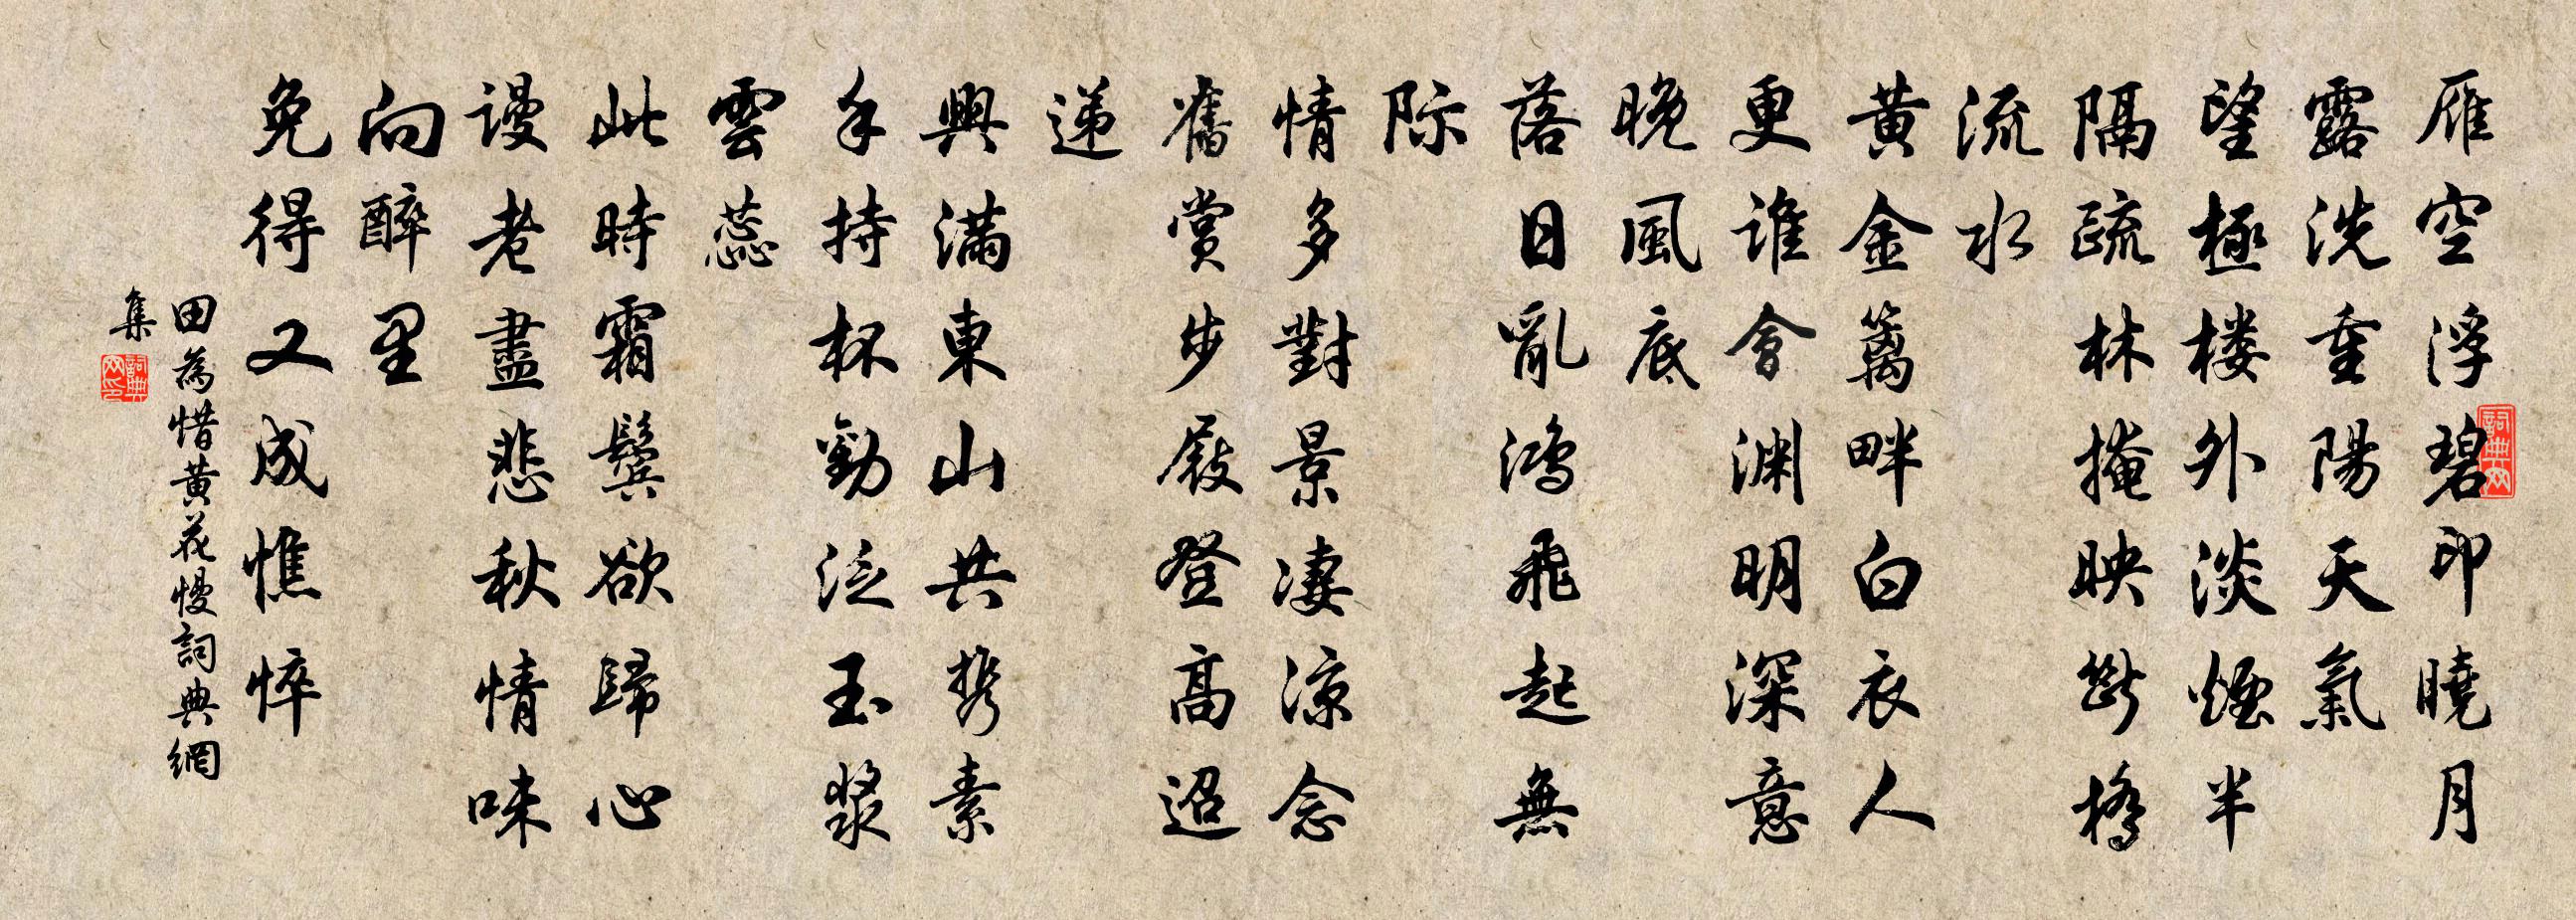 雁空浮碧印曉月
露洗重陽天氣
望極楼外淡煙半
隔疏林掩映斷橋
流水
黄金篱畔白衣人
更谁會渊明深意
晚風底
落日亂鴻飛起無
际
情多對景凄涼念
舊賞步屐登高迢
递
興滿東山共携素
手持杯勸泛玉漿
雲蕊
此時霜鬓欲歸心
谩老盡悲秋情味
向醉里
免得又成憔悴
田為惜黄花慢詞典網
集
詞典網
詞典網印